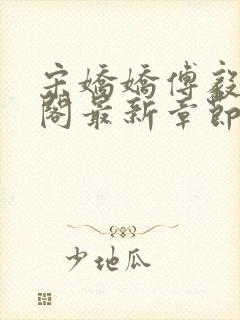 宋嬌嬌傅毅
閣最新章節
少地瓜